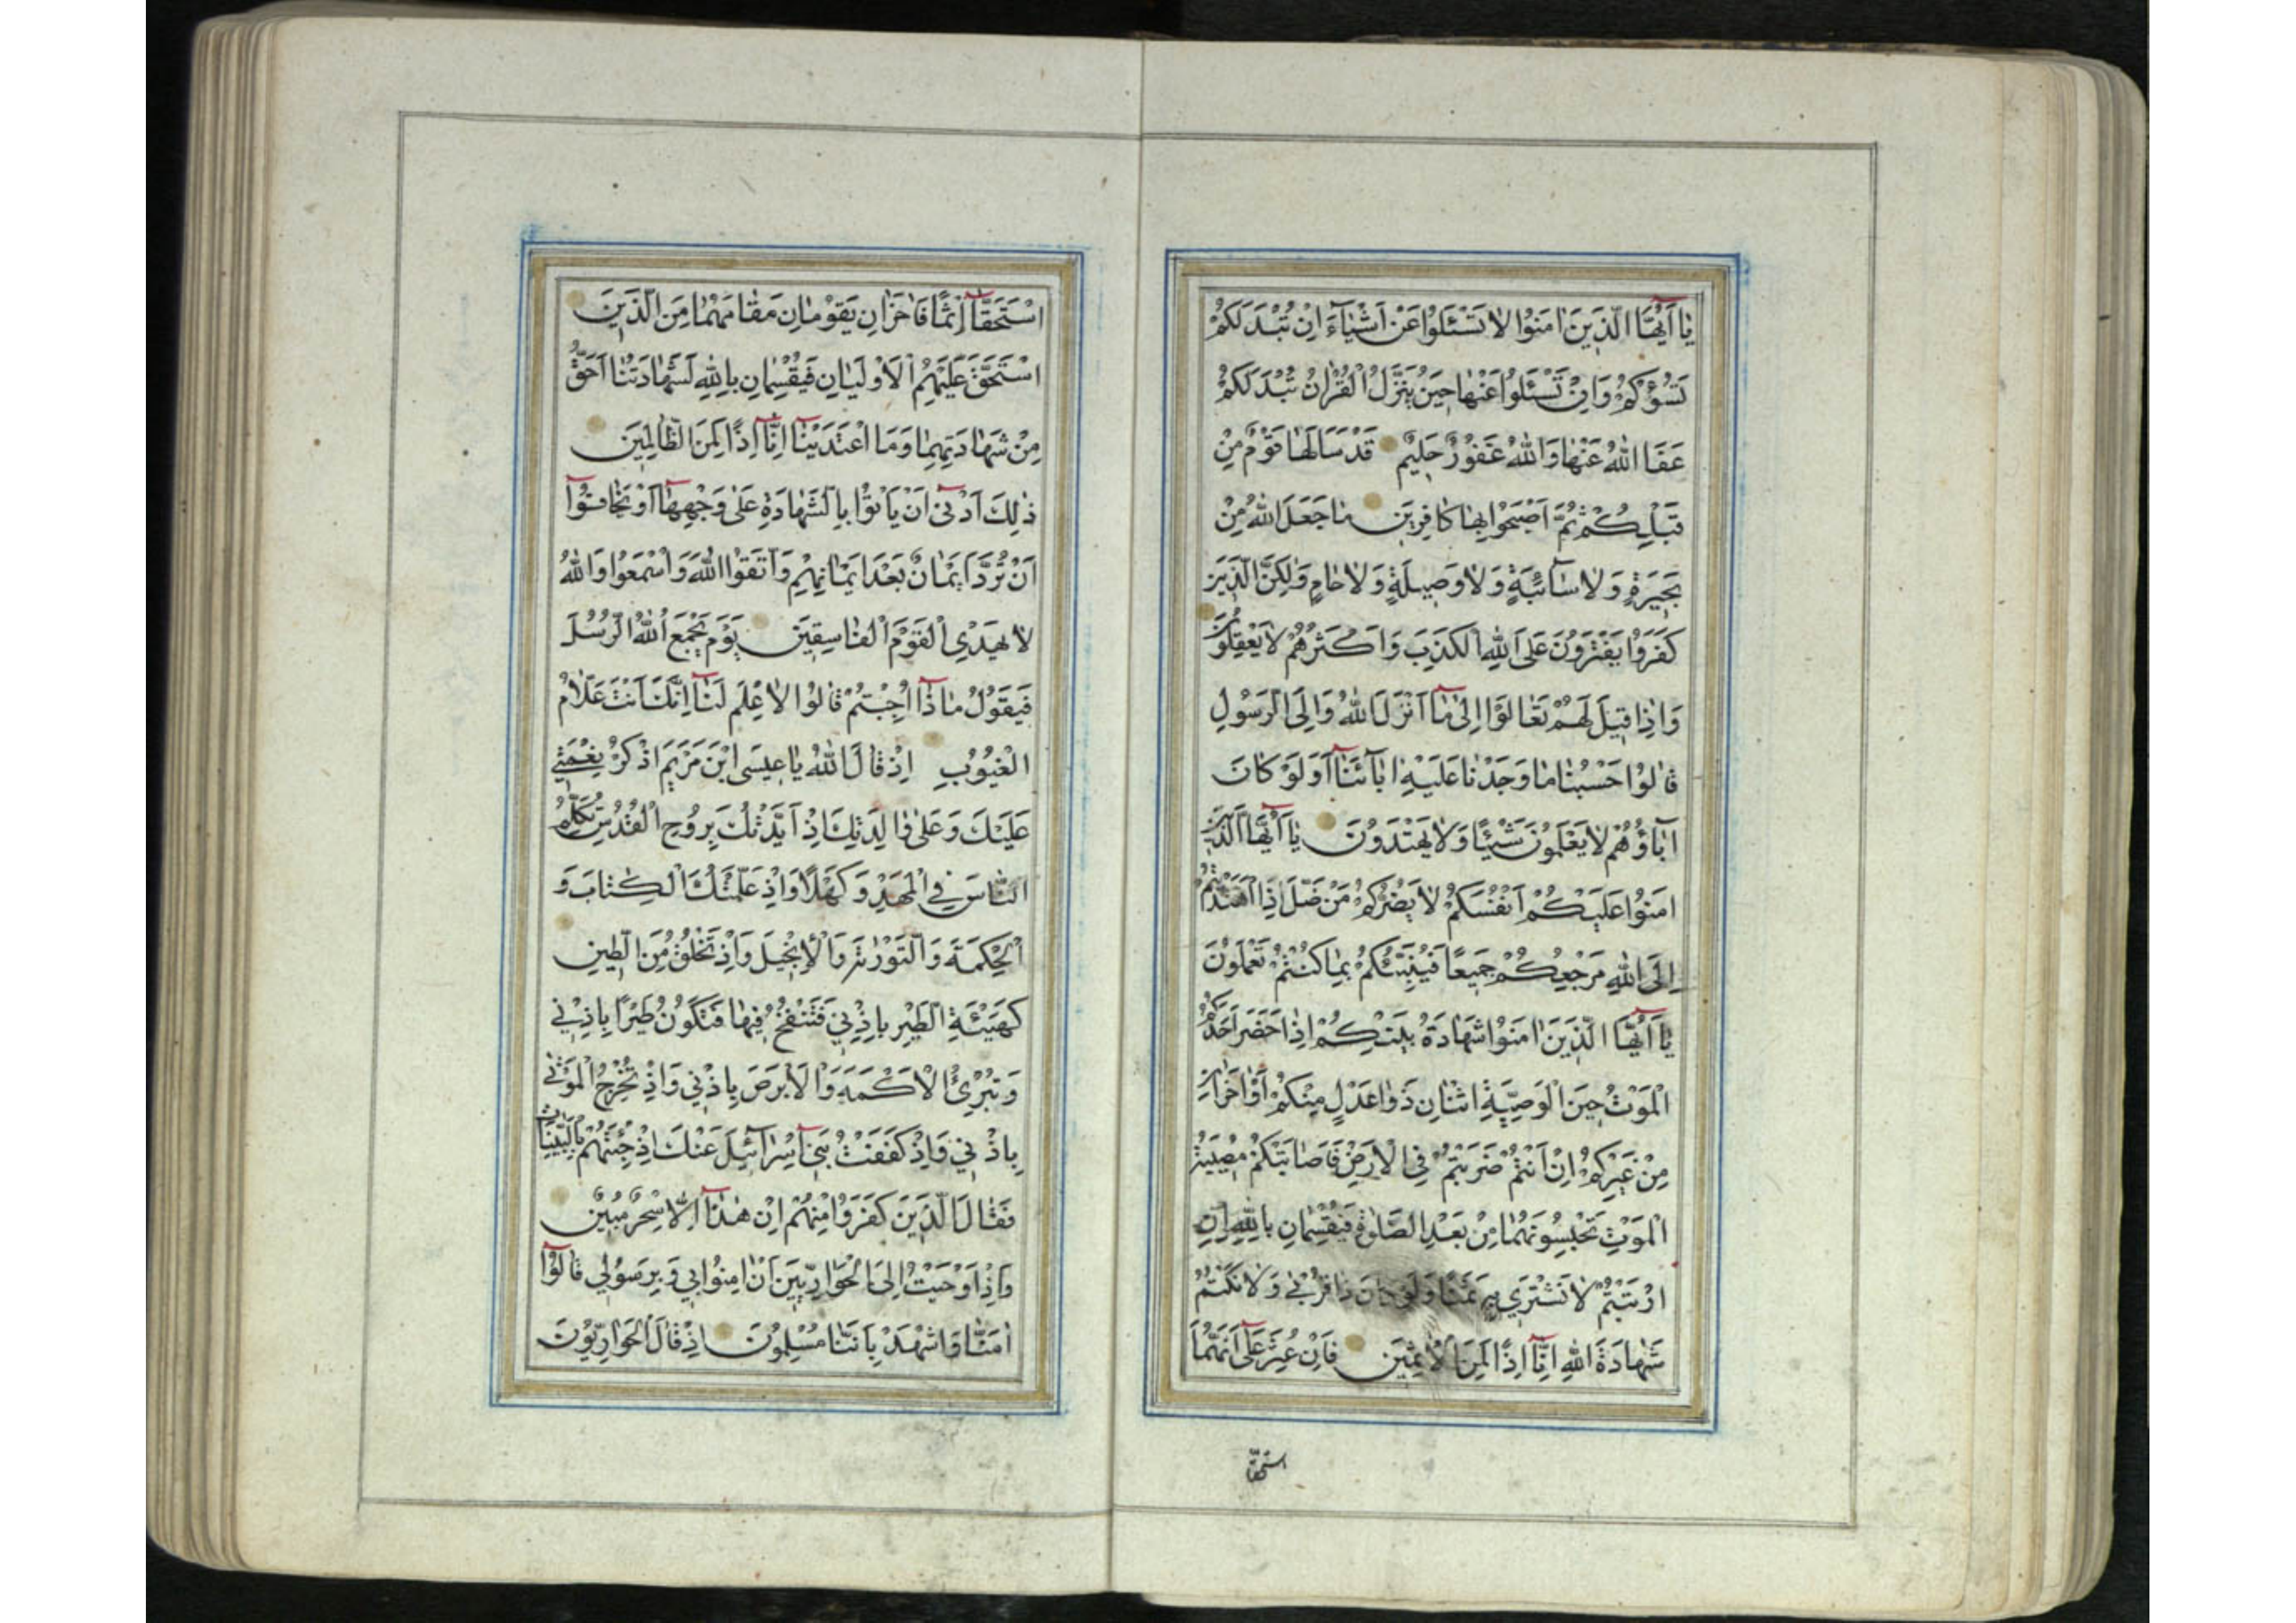 يٰا اَيُّهَا الَّذينَ اٰمَنُوا لٰا تَسْئَلُوا عَنْ اَشْيٰاءَ اِنْ تُبْدَ لَكُمْ
تَسُؤْكُمْ وَاِنْ تَسْئَلُوا عَنْهٰا حينَ يُنَزَّلُ الْقُرْاٰنُ تُبْدَ لَكُمْ
عَفَا اللّٰهُ عَنْهٰا وَاللّٰهُ غَفُورٌ حَليمٌ قَدْ سَاَلَهٰا قَوْمٌ مِنْ
قَبْلِكُمْ ثُمَّ اَصْبَحُوا بِهٰا كٰافِرينَ مٰا جَعَلَ اللّٰهُ مِنْ
بَحيرَةٍ وَلٰا سٰائِبَةٍ وَلٰا وَصيلَةٍ وَلٰا حٰامٍ وَلٰكِنَّ الَّذينَ
كَفَرُوا يَفْتَرُونَ عَلَى اللّٰهِ الْكَذِبَ وَاَكْثَرُهُمْ لٰا يَعْقِلُونَ
وَاِذٰا قيلَ لَهُمْ تَعٰالَوْا اِلىٰ مٰا اَنْزَلَ اللّٰهُ وَاِلَى الرَّسُولِ
قٰالُوا حَسْبُنٰا مٰا وَجَدْنٰا عَلَيْهِ اٰبٰائَنٰا اَوَلَوْ كٰانَ
اٰبٰاؤُهُمْ لٰا يَعْلَمُونَ شَيْئًا وَلٰا يَهْتَدُونَ يٰا اَيُّهَا الَّذينَ
اٰمَنُوا عَلَيْكُمْ اَنْفُسَكُمْ لٰا يَضُرُّكُمْ مَنْ ضَلَّ اِذَا اهْتَدَيْتُمْ
اِلَى اللّٰهِ مَرْجِعُكُمْ جَميعًا فَيُنَبِّئُكُمْ بِمٰا كُنْتُمْ تَعْمَلُونَ
يٰا اَيُّهَا الَّذينَ اٰمَنُوا شَهٰادَةُ بَيْنِكُمْ اِذٰا حَضَرَ اَحَدَكُمُ
الْمَوْتُ حينَ الْوَصِيَّةِ اثْنٰانِ ذَوٰا عَدْلٍ مِنْكُمْ اَوْ اٰخَرٰانِ
مِنْ غَيْرِكُمْ اِنْ اَنْتُمْ ضَرَبْتُمْ فِي الْاَرْضِ فَاَصٰابَتْكُمْ مُصيبَةُ
الْمَوْتِ تَحْبِسُونَهُمٰا مِنْ بَعْدِ الصَّلٰوةِ فَيُقْسِمٰانِ بِاللّٰهِ اِنِ
ارْتَبْتُمْ لٰا نَشْتَري بِهِ ثَمَنًا وَلَوْ كٰانَ ذٰا قُرْبىٰ وَلٰا نَكْتُمُ
شَهٰادَةَ اللّٰهِ اِنّٰا اِذًا لَمِنَ الْاٰثِمينَ فَاِنْ عُثِرَ عَلىٰ اَنَّهُمَا
استحقا
اسْتَحَقّٰا اِثْمًا فَاٰخَرٰانِ يَقُومٰانِ مَقٰامَهُمٰا مِنَ الَّذينَ
اسْتَحَقَّ عَلَيْهِمُ الْاَوْلَيٰانِ فَيُقْسِمٰانِ بِاللّٰهِ لَشَهٰادَتُنٰا اَحَقُّ
مِنْ شَهٰادَتِهِمٰا وَمَا اعْتَدَيْنٰا اِنّٰا اِذًا لَمِنَ الظّٰالِمينَ
ذٰلِكَ اَدْنىٰ اَنْ يَاْتُوا بِالشَّهٰادَةِ عَلىٰ وَجْهِهٰا اَوْ يَخٰافُوا
اَنْ تُرَدَّ اَيْمٰانٌ بَعْدَ اَيْمٰانِهِمْ وَاتَّقُوا اللّٰهَ وَاسْمَعُوا وَاللّٰهُ
لٰا يَهْدِي الْقَوْمَ الْفٰاسِقينَ يَوْمَ يَجْمَعُ اللّٰهُ الرُّسُلَ
فَيَقُولُ مٰا ذٰا اُجِبْتُمْ قٰالُوا لٰا عِلْمَ لَنٰا اِنَّكَ اَنْتَ عَلّٰامُ
الْغُيُوبِ اِذْ قٰالَ اللّٰهُ يٰا عيسَى ابْنَ مَرْيَمَ اذْكُرْ نِعْمَتي
عَلَيْكَ وَعَلىٰ وٰالِدَتِكَ اِذْ اَيَّدْتُكَ بِرُوحِ الْقُدُسِ تُكَلِّمُ
النّٰاسَ فِي الْمَهْدِ وَكَهْلًا وَاِذْ عَلَّمْتُكَ الْكِتٰابَ وَ
الْحِكْمَةَ وَالتَّوْرٰيةَ وَالْاِنْجيلَ وَاِذْ تَخْلُقُ مِنَ الطّينِ
كَهَيْئَةِ الطَّيْرِ بِاِذْني فَتَنْفُخُ فيهٰا فَتَكُونُ طَيْرًا بِاِذْني
وَتُبْرِئُ الْاَكْمَهَ وَالْاَبْرَصَ بِاِذْني وَاِذْ تُخْرِجُ الْمَوْتىٰ
بِاِذْني وَاِذْ كَفَفْتُ بَني اِسْرٰائيلَ عَنْكَ اِذْ جِئْتَهُمْ بِالْبَيِّنٰاتِ
فَقٰالَ الَّذينَ كَفَرُوا مِنْهُمْ اِنْ هٰذٰا اِلّٰا سِحْرٌ مُبينٌ
وَاِذْ اَوْحَيْتُ اِلَى الْحَوٰارِيّينَ اَنْ اٰمِنُوا بي وَبِرَسُولي قٰالُوا
اٰمَنّٰا وَاشْهَدْ بِاَنَّنٰا مُسْلِمُونَ اِذْ قٰالَ الْحَوٰارِيُّونَ